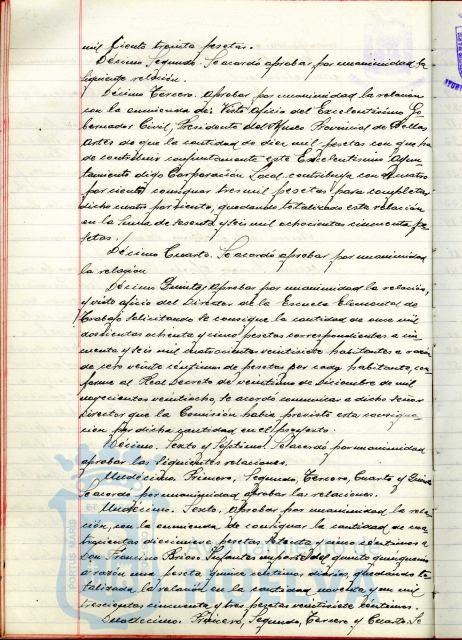 mil ciento treinta pesetas.
Décimo Segundo. Se acordó aprobar por unanimidad la
siguiente relación.
Décimo Tercero. Aprobar por unanimidad la relación
con la enmienda de: Visto oficio del Excelentísimo Go-
bernador Civil, Presidente del Museo Provincial de Bellas
Artes de que la cantidad de diez mil pesetas con que ha
de contribuir conjuntamente este Excelentísimo Ayun-
tamiento digo Corporación Local contribuya con cuatro
por ciento consignar tres mil pesetas para completar
dicho cuatro por ciento, quedando totalizada esta relación
en la suma de sesenta y seis mil ochocientas cincuenta pe-
setas.
Décimo Cuarto. Se acordó aprobar por unanimidad
la relación
Décimo Quinto; aprobar por unanimidad la relación,
y visto oficio del Director de la Escuela Elemental de
Trabajo solicitando se consigne la cantidad de once mil
doscientas ochenta y cinco pesetas correspondientes a cin-
cuenta y seis mil cuatrocientos veintisiete habitantes a razón
de cero veinte céntimos de pesetas por cada habitante, con-
forme al Real Decreto de veintiuno de Diciembre de mil
novecientos veintiocho, se acordó comunicar a dicho señor
Director que la Comisión había previsto esta consigna-
ción por dicha cantidad en el proyecto.
Décimo. Sexto y Séptimo. Se acordó por unanimidad
aprobar las siguientes relaciones.
Undécimo. Primero, Segundo, Tercero, Cuarto y Quinto
Se acordó por unanimidad aprobar las relaciones.
Undécimo. Sexto, aprobar por unanimidad la rela-
ción, con la enmienda de consignar la cantidad de cua-
trocientas diecinueve pesetas setenta y cinco céntimos a
Don Francisco Infantes importe del quinto quinquenio
a razón una peseta quince céntimos diarios, quedando to-
talizada la relación en la cantidad noventa y un mil
trescientas cincuenta y tres pesetas veintisiete céntimos.
Duodécimo. Primero, Segundo, Tercero y Cuarto. Se